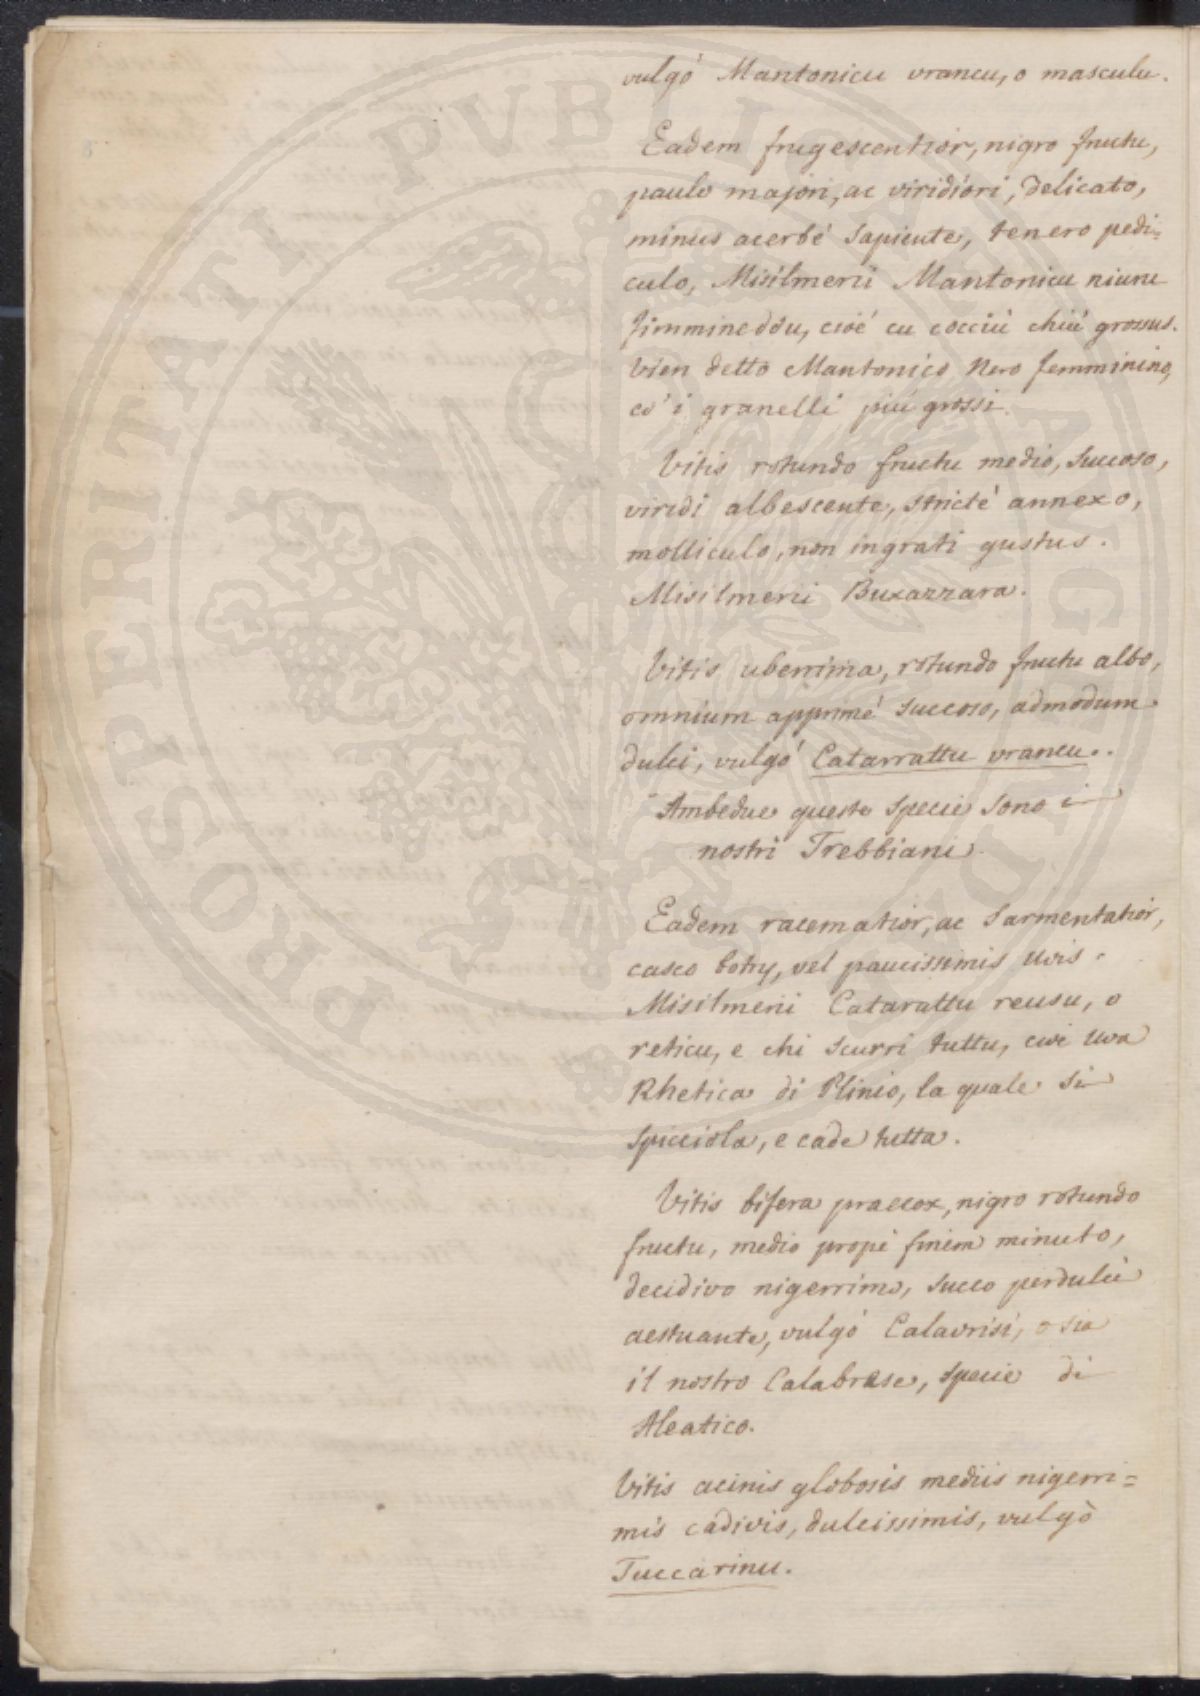 vulgó Mantonicu vrancu, o masculu.
Eadem frugescentior, nigro fructu,
paulo majori, ac viridiori, delicato,
minus acerbé sapiente, tenero pedi=
culo, Misilmerii Mantonicu niuru
fimmineddu, cioé cu cocciù chiù grossus.
Vien detto Mantonico Nero femminino,
co' i granelli più grossi.
Vitis rotundo fructu medio, succoso,
viridi albescente, stricté annexo,
molliculo, non ingrati gustus.
Misilmerii Buxazzara.
Vitis uberrima, rotundo fructu albo,
omnium apprimé succoso, admodum
dulci, vulgó Catarrattu vrancu.
Ambedue queste specie sono i
nostri Trebbiani.
Eadem racematior, ac sarmentatiòr,
casco botry, vel paucissimis uvis.
Misilmerii Catarattu reusu, o
reticu, e chi scurri tuttu, cioè Uva
Rhetica di Plinio, la quale si
spicciola, e cade tutta.
Vitis bifera praecox, nigro rotundo
fructu, medio propé finem minuto,
decidivo nigerrimo, succo perdulci
aestuante, vulgó Calavrisi, o sia
il nostro Calabrese, specie di
Aleatico.
Vitis acinis globosis mediis nigerri=
mis cadivis, dulcissimis, vulgò
Tuccarinu.
PROSPERITATI PUBLICAE AUGENDAE